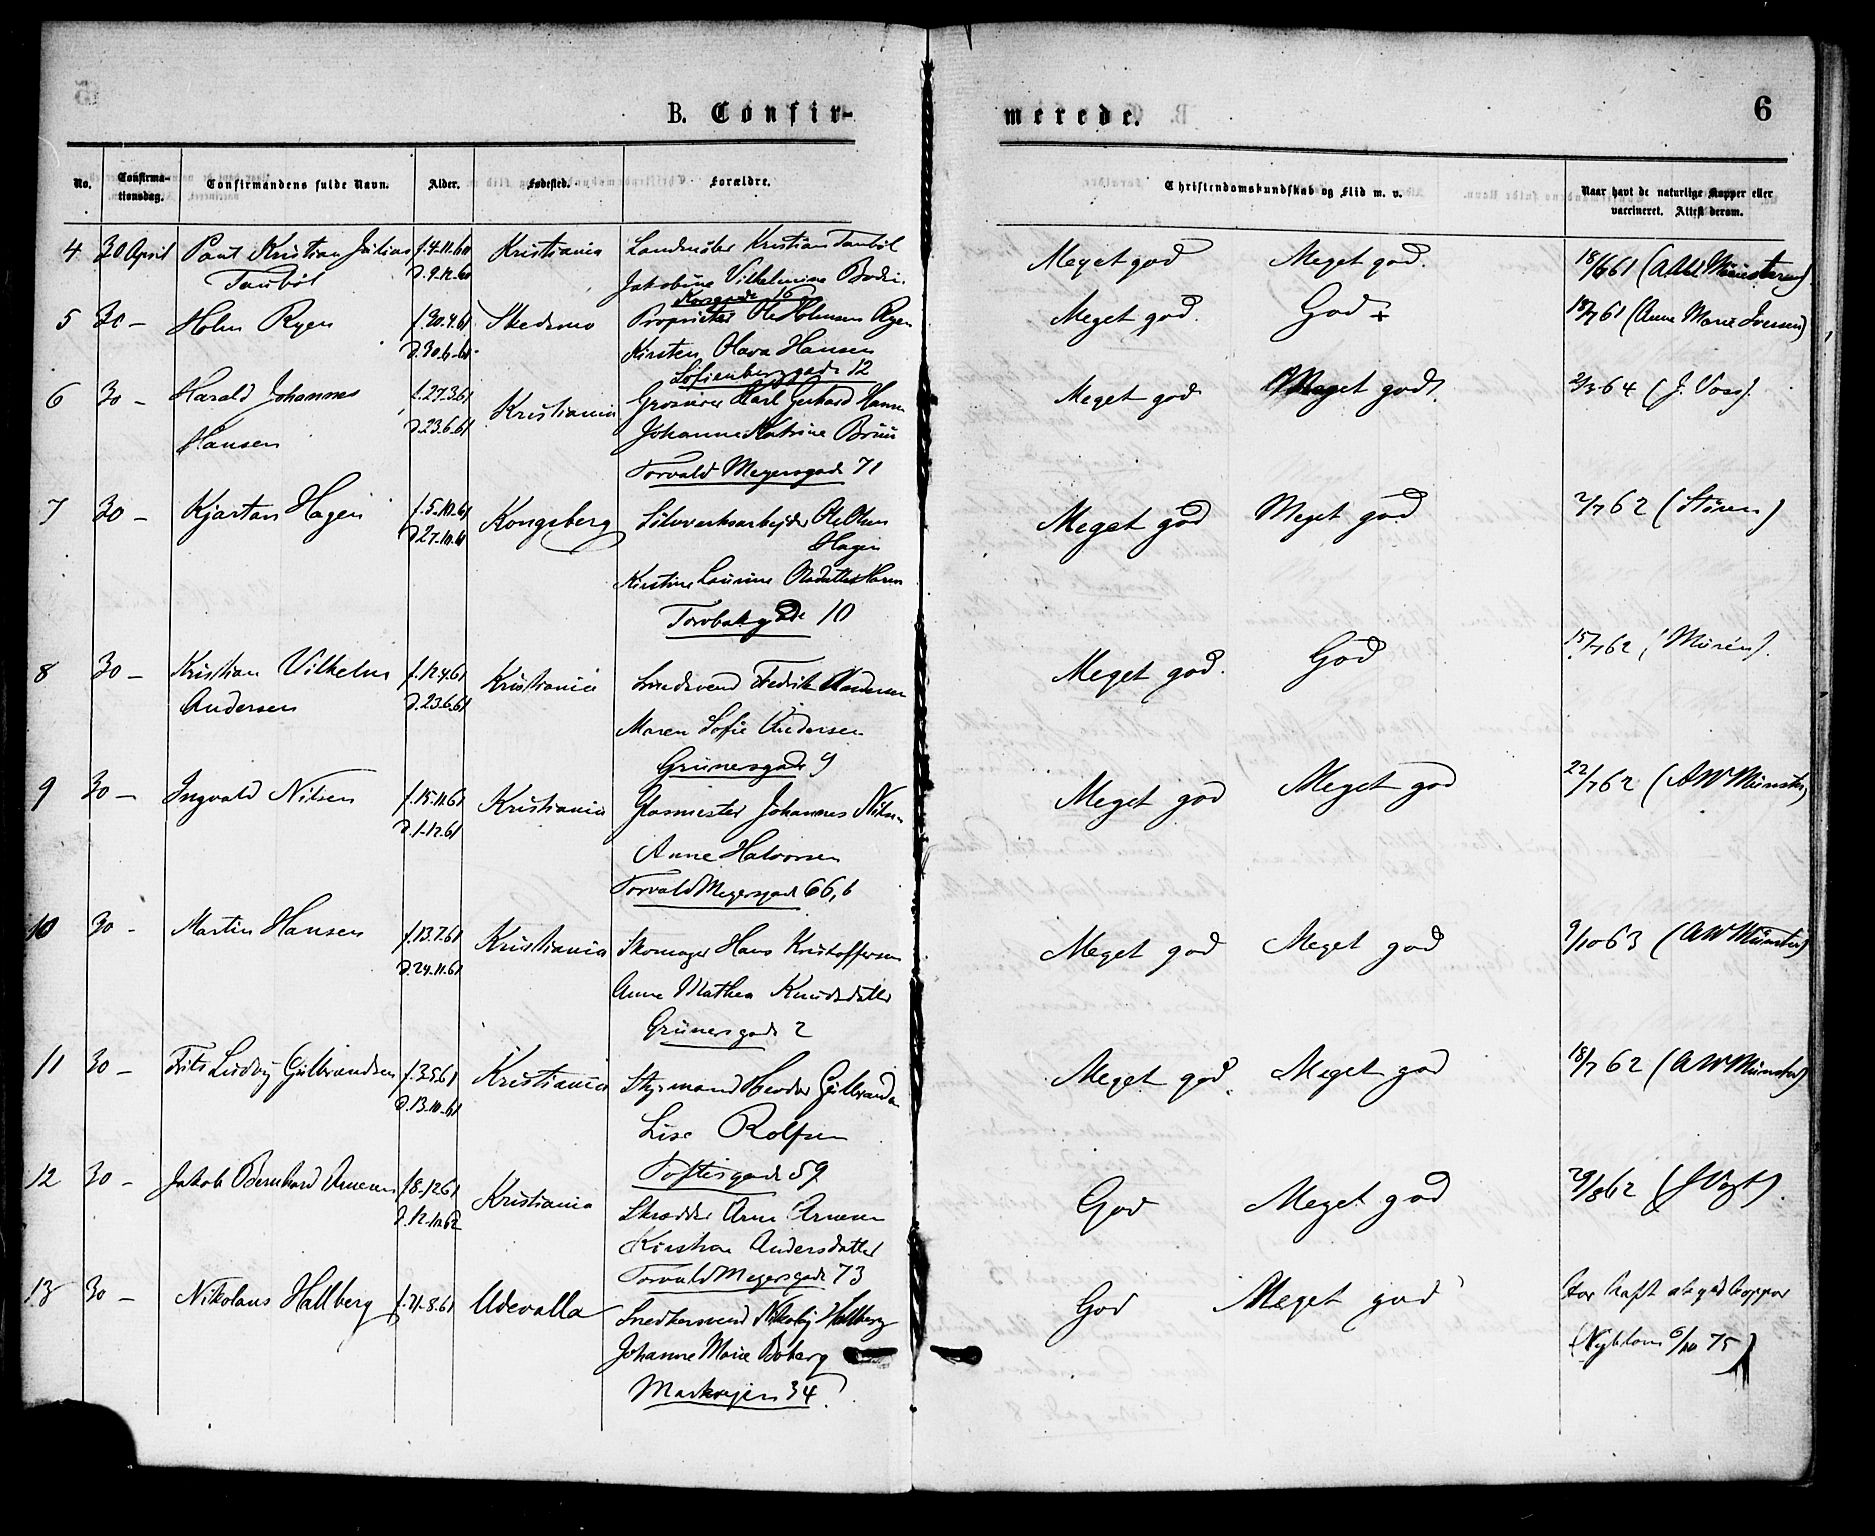 B. Confirmerede.
6
No. Confirmationsdag. Confirmandens fulde Navn. Alder. Fødested. Forældre. Christendomskundskab og Flid m. v. Naar havt de naturlige Kopper eller vaccineret. Attest derom.
4 30 April Paul Kristian Julius f. 4.11.60 Kristiania Kristian Meget god Meget god.
d. 9.12.60 Jakobine Vilhelmine
5 30 – Holm Ryen f. 30.4.61 Skedsmo Proprietær Ole Holmsen Ryen Meget god. God + (Anne Marie Iversen)
d. 30.6.61 Kirsten Olava Hansen
Sofienberggade 12
6 30 – Harald Johannes f. 27.3.61 Kristiania Karl Gerhard Hansen Meget god Meget god. (J. Voss).
Hansen d. 23.6.61 Johanne Katrine Bruu
Torvald Meyersgade 71
7 30 – Kjartan Hagen f. 5.10.61 Kongsberg Sølvverksarbejder Ole Olsen Meget god Meget god 2/7 62 (Støren)
d. 27.10.61 Hagen
Kirstine Laurine
10
8 30 – Kristian Vilhelm f. 12.4.61 Kristiania Fredrik Andersen Meget god. God 15/7 62
Andersen d. 23.6.61 Maren Sofie Andersen
Grünersgade 9
9 30 – Ingvald Nilsen f. 15.11.61 Kristiania Glasmester Johannes Nilsen Meget god Meget god 22/7 62 (AW Münster)
d. 1.12.61 Anne Halvorsen
Torvald Meyersgade 66, b
10 30 – Martin Hansen f. 13.7.61 Kristiania Skomager Hans Kristoffersen Meget god Meget god 9/10 63 (AW Münster)
d. 24.11.61 Anne Mathea Knudsdatter
Grünersgade 2
11 30 – Frits Ludvig Gulbrandsen f. 3.5.61 Kristiania Styrmand Gulbrandsen Meget god. Meget god 18/7 62 (AW Münster)
d. 13.10.61 Lise Rolfsen
Toftesgade 59
12 30 – Jakob Bernhard Arnesen f. 8.12.61 Kristiania Skrædder Arne Arnesen God Meget god 29/8 62 (J Vogt).
Andersdatter
Torvald Meyersgade 73
13 30 – Nikolaus Hallberg f. 21.8.61 Udevalla Snedkersvend Hallberg God Meget god
Johanne Marie Boberg 75)
Markvejen 34